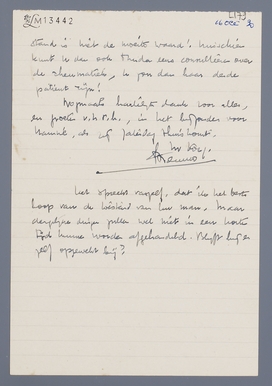 M13442
[17]
16 DEC. 30
stand is niet de moeite waard! Misschien
kunt u den ook Thuda eens consulteeren over
de rheumatiek, u zou dan haar derde
patient zijn!
Nogmaals hartelijk dank voor alles,
en groeten v.h.t.h., in het bijzonder voor
Hannie, als
Uw
Het spreekt vanzelf, dat ik het beste
hoop van de toestand van Uw man. Maar
dergelijke dingen zullen wel niet in een korte
tijd kunnen worden afgehandeld. Blijft hij er
zelf opgewekt bij?